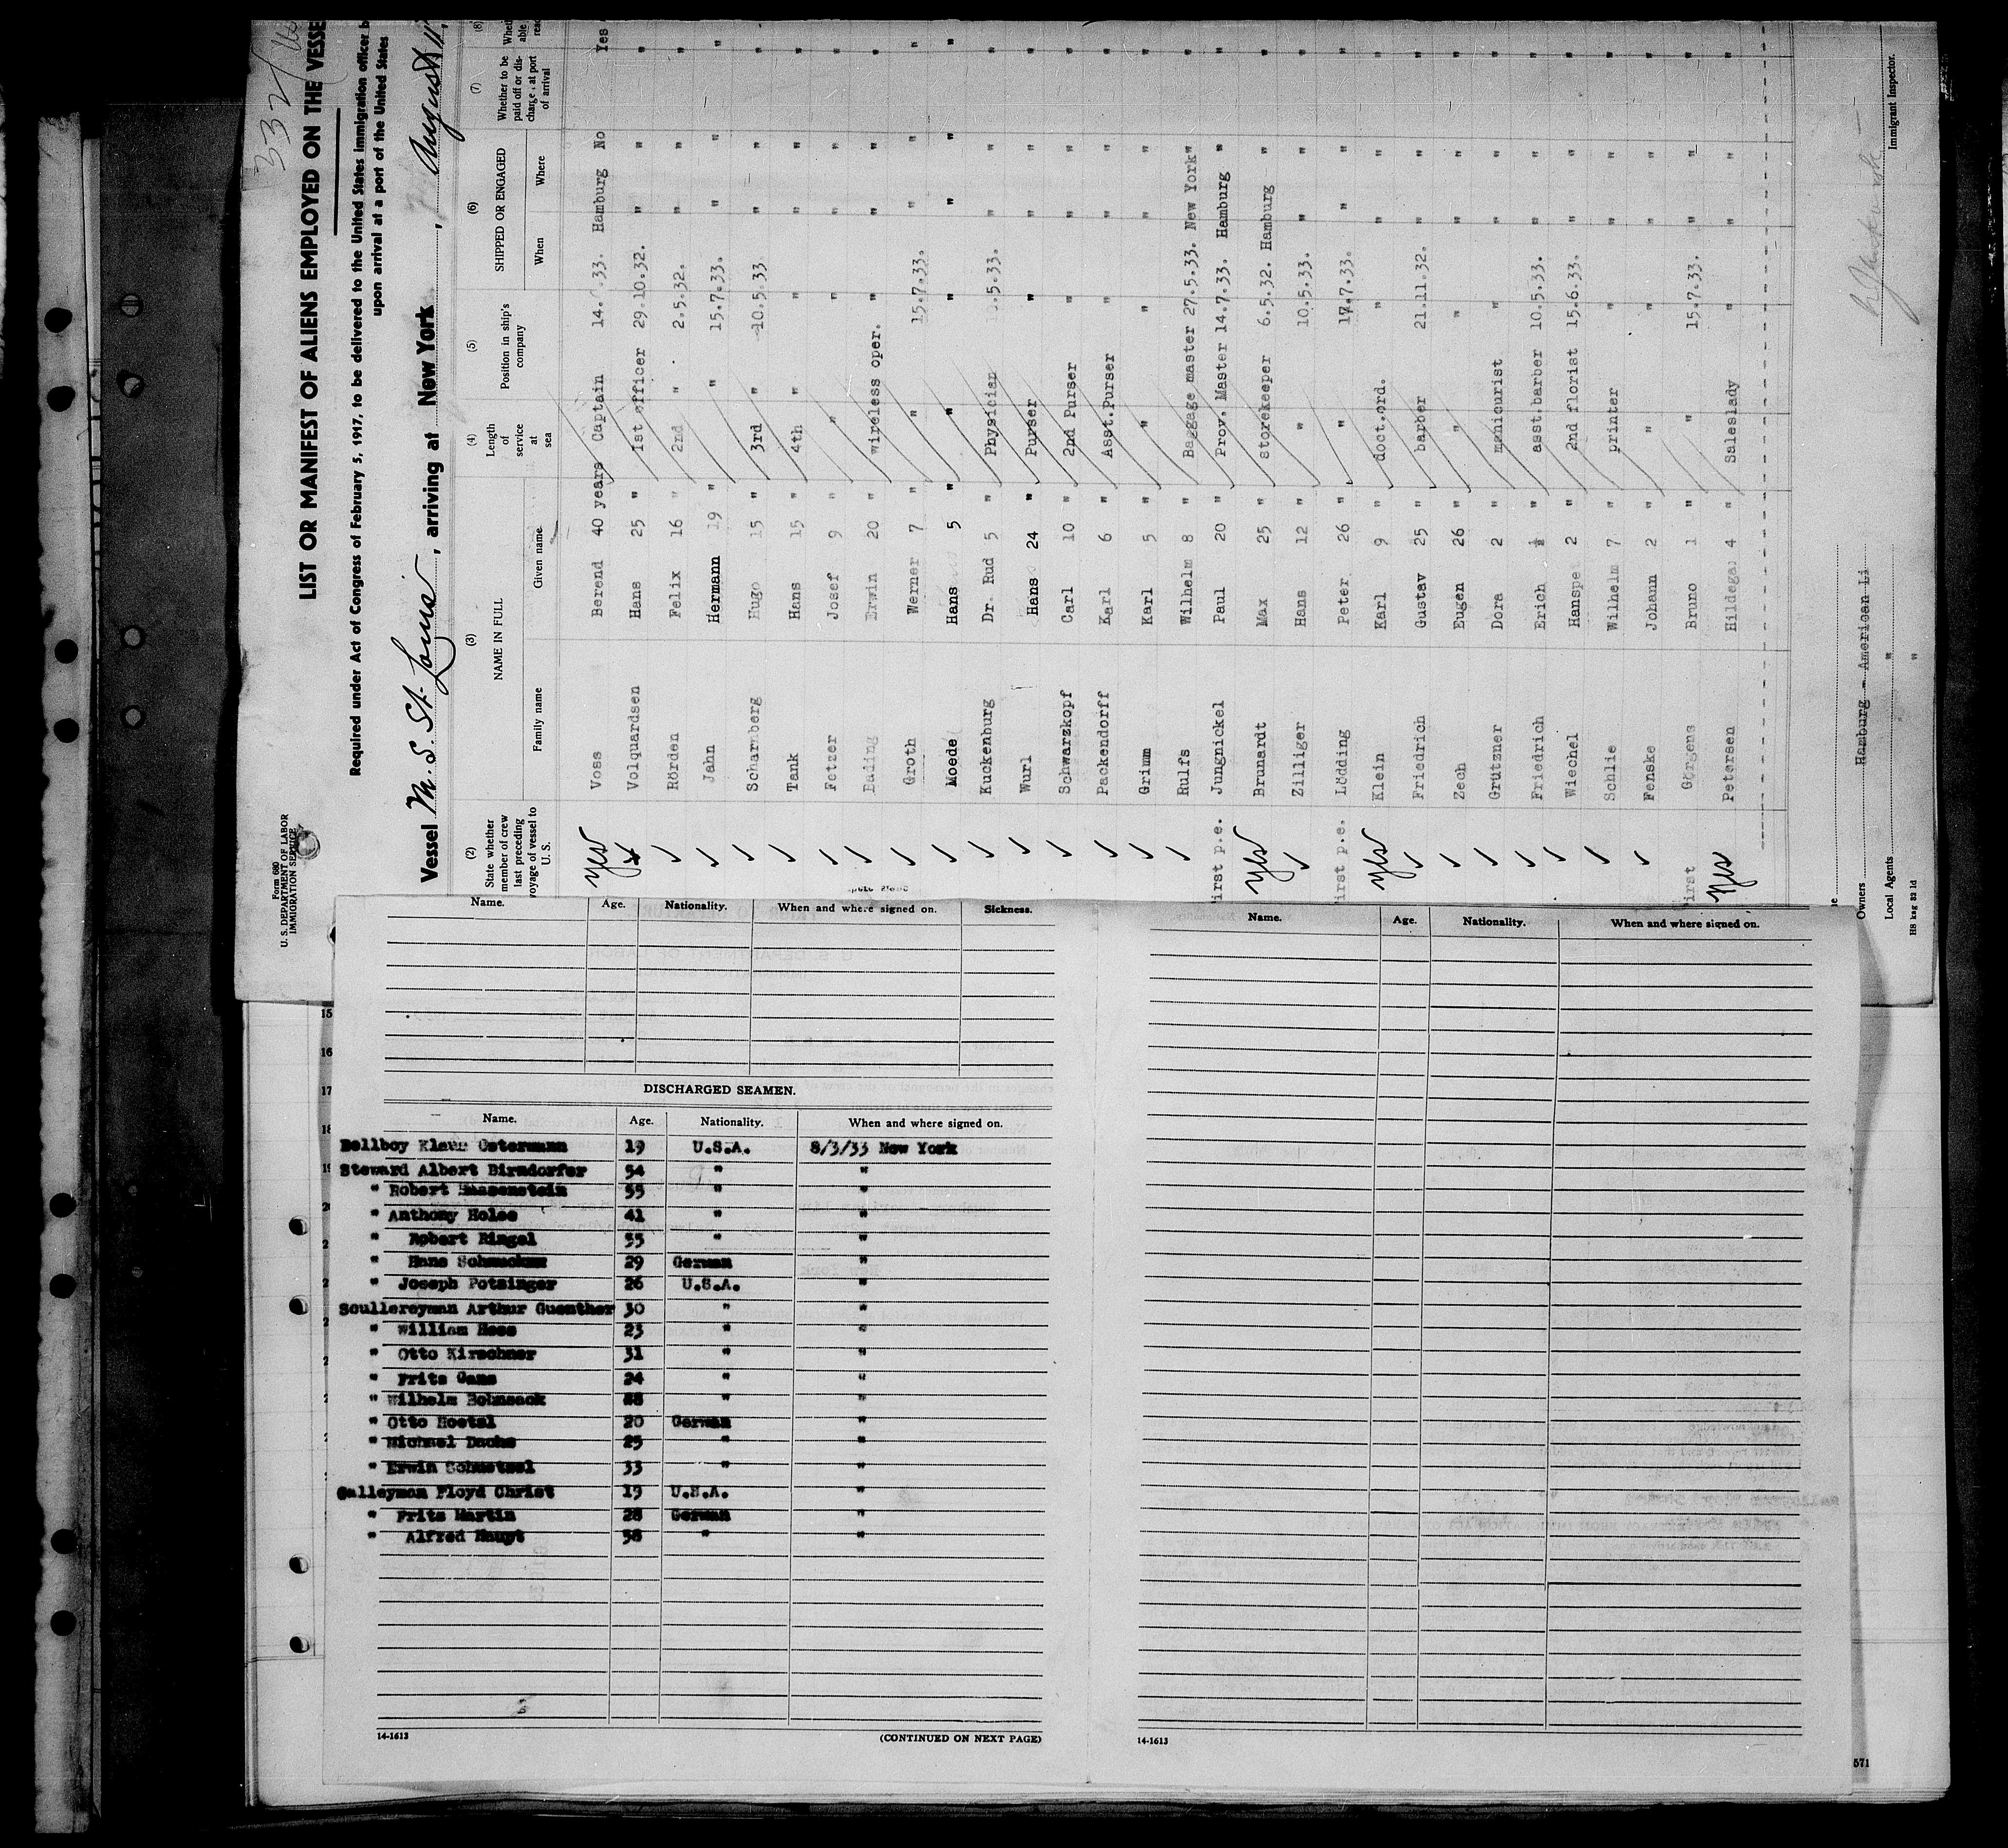 332/
LIST OR MANIFEST OF ALIENS EMPLOYED ON THE VESSE
Required under Act of Congress of February 5, 1917, to be delivered to the United States immigration officer b
upon arrival at a port of the United States
Form 680
U. S. DEPARTMENT OF LABOR
IMMIGRATION SERVICE
Vessel M. S. St. Louis, arriving at New York, August 11
(2) State whether member of crew last preceding voyage of vessel to U. S.
(3) NAME IN FULL
Family name Given name
(4) Length of service at sea
(5) Position in ship's company
(6) SHIPPED OR ENGAGED
When Where
(7) Whether to be paid off or discharged at port of arrival
(8)
yes Voss Berend 40 years Captain 14. .33. Hamburg No Yes
Volquardsen Hans 25 " 1st officer 29.10.32. " " "
Rörden Felix 16 " 2nd " 2.5.32. " " "
Jahn Hermann 19 " " 15.7.33. " "
Scharnberg Hugo 15 " 3rd " 10.5.33 " " "
Tank Hans 15 " 4th " " " " "
Fetzer Josef 9 " " " " " "
Dading Erwin 20 " wireless oper. " " " "
Groth Werner 7 " " 15.7.33. " " "
Moede Hans 5 " " " " " "
Kuckenburg Dr. Rud 5 " Physician .5.33. " " "
Wurl Hans 24 " Purser " " " "
Schwarzkopf Carl 10 " 2nd Purser " " " "
Packendorff Karl 6 " Asst.Purser " " " "
Grimm Karl 5 " " " " " "
Rulfs Wilhelm 8 " Baggage master 27.5.33. New York " "
irst p.e. Jungnickel Paul 20 " Prov. Master 14.7.33. Hamburg " "
yes Brunardt Max 25 " storekeeper 6.5.32. Hamburg " "
Zilliger Hans 12 " " 10.5.33. " " "
irst p.e. Lödding Peter 26 " " 17.7.33. " " "
yes Klein Karl 9 " doct.ord. " " " "
Friedrich Gustav 25 " barber 21.11.32. " " "
Zech Eugen 26 " " " " " "
Grützner Dora 2 " manicurist " " " "
Friedrich Erich ½ " asst.barber 10.5.33. " " "
Wiechel Hanspe 2 " 2nd florist 15.6.33. " " "
Schlie Wilhelm 7 " printer " " " "
Fenske Johann 2 " " " " " "
irst Görgens Bruno 1 " " 15.7.33. " " "
yes Petersen Hildegar 4 " Saleslady " " " "
Owners Hamburg - American Li
Local Agents " "
H8 kag 32 1d
Immigrant Inspector.
Name. Age. Nationality. When and where signed on. Sickness.
Name. Age. Nationality. When and where signed on.
15
16
17
18
DISCHARGED SEAMEN.
Name. Age. Nationality. When and where signed on.
Bellboy Klaus Ostermann 19 U.S.A. 8/3/33 New York
Steward Albert Birndorfer 54 " "
" Robert Haasenstein 55 " "
" Anthony Holee 41 " "
" Robert Ringel 55 " "
" Hans Schmucker 29 German "
" Joseph Potzinger 26 U.S.A. "
Scullereyman Arthur Guenther 30 " "
" William Hess 23 " "
" Otto Kirschner 31 " "
" Fritz Gans 24 " "
" Wilhelm Bohnsack "
" Otto Hostal 20 German "
" Michael Dachs 25 " "
" Erwin Schuetzel 33 " "
Galleyman Floyd Christ 19 U.S.A. "
" Fritz Martin 28 German "
" Alfred Haupt 38 " "
14-1613
(CONTINUED ON NEXT PAGE)
14-1613
571